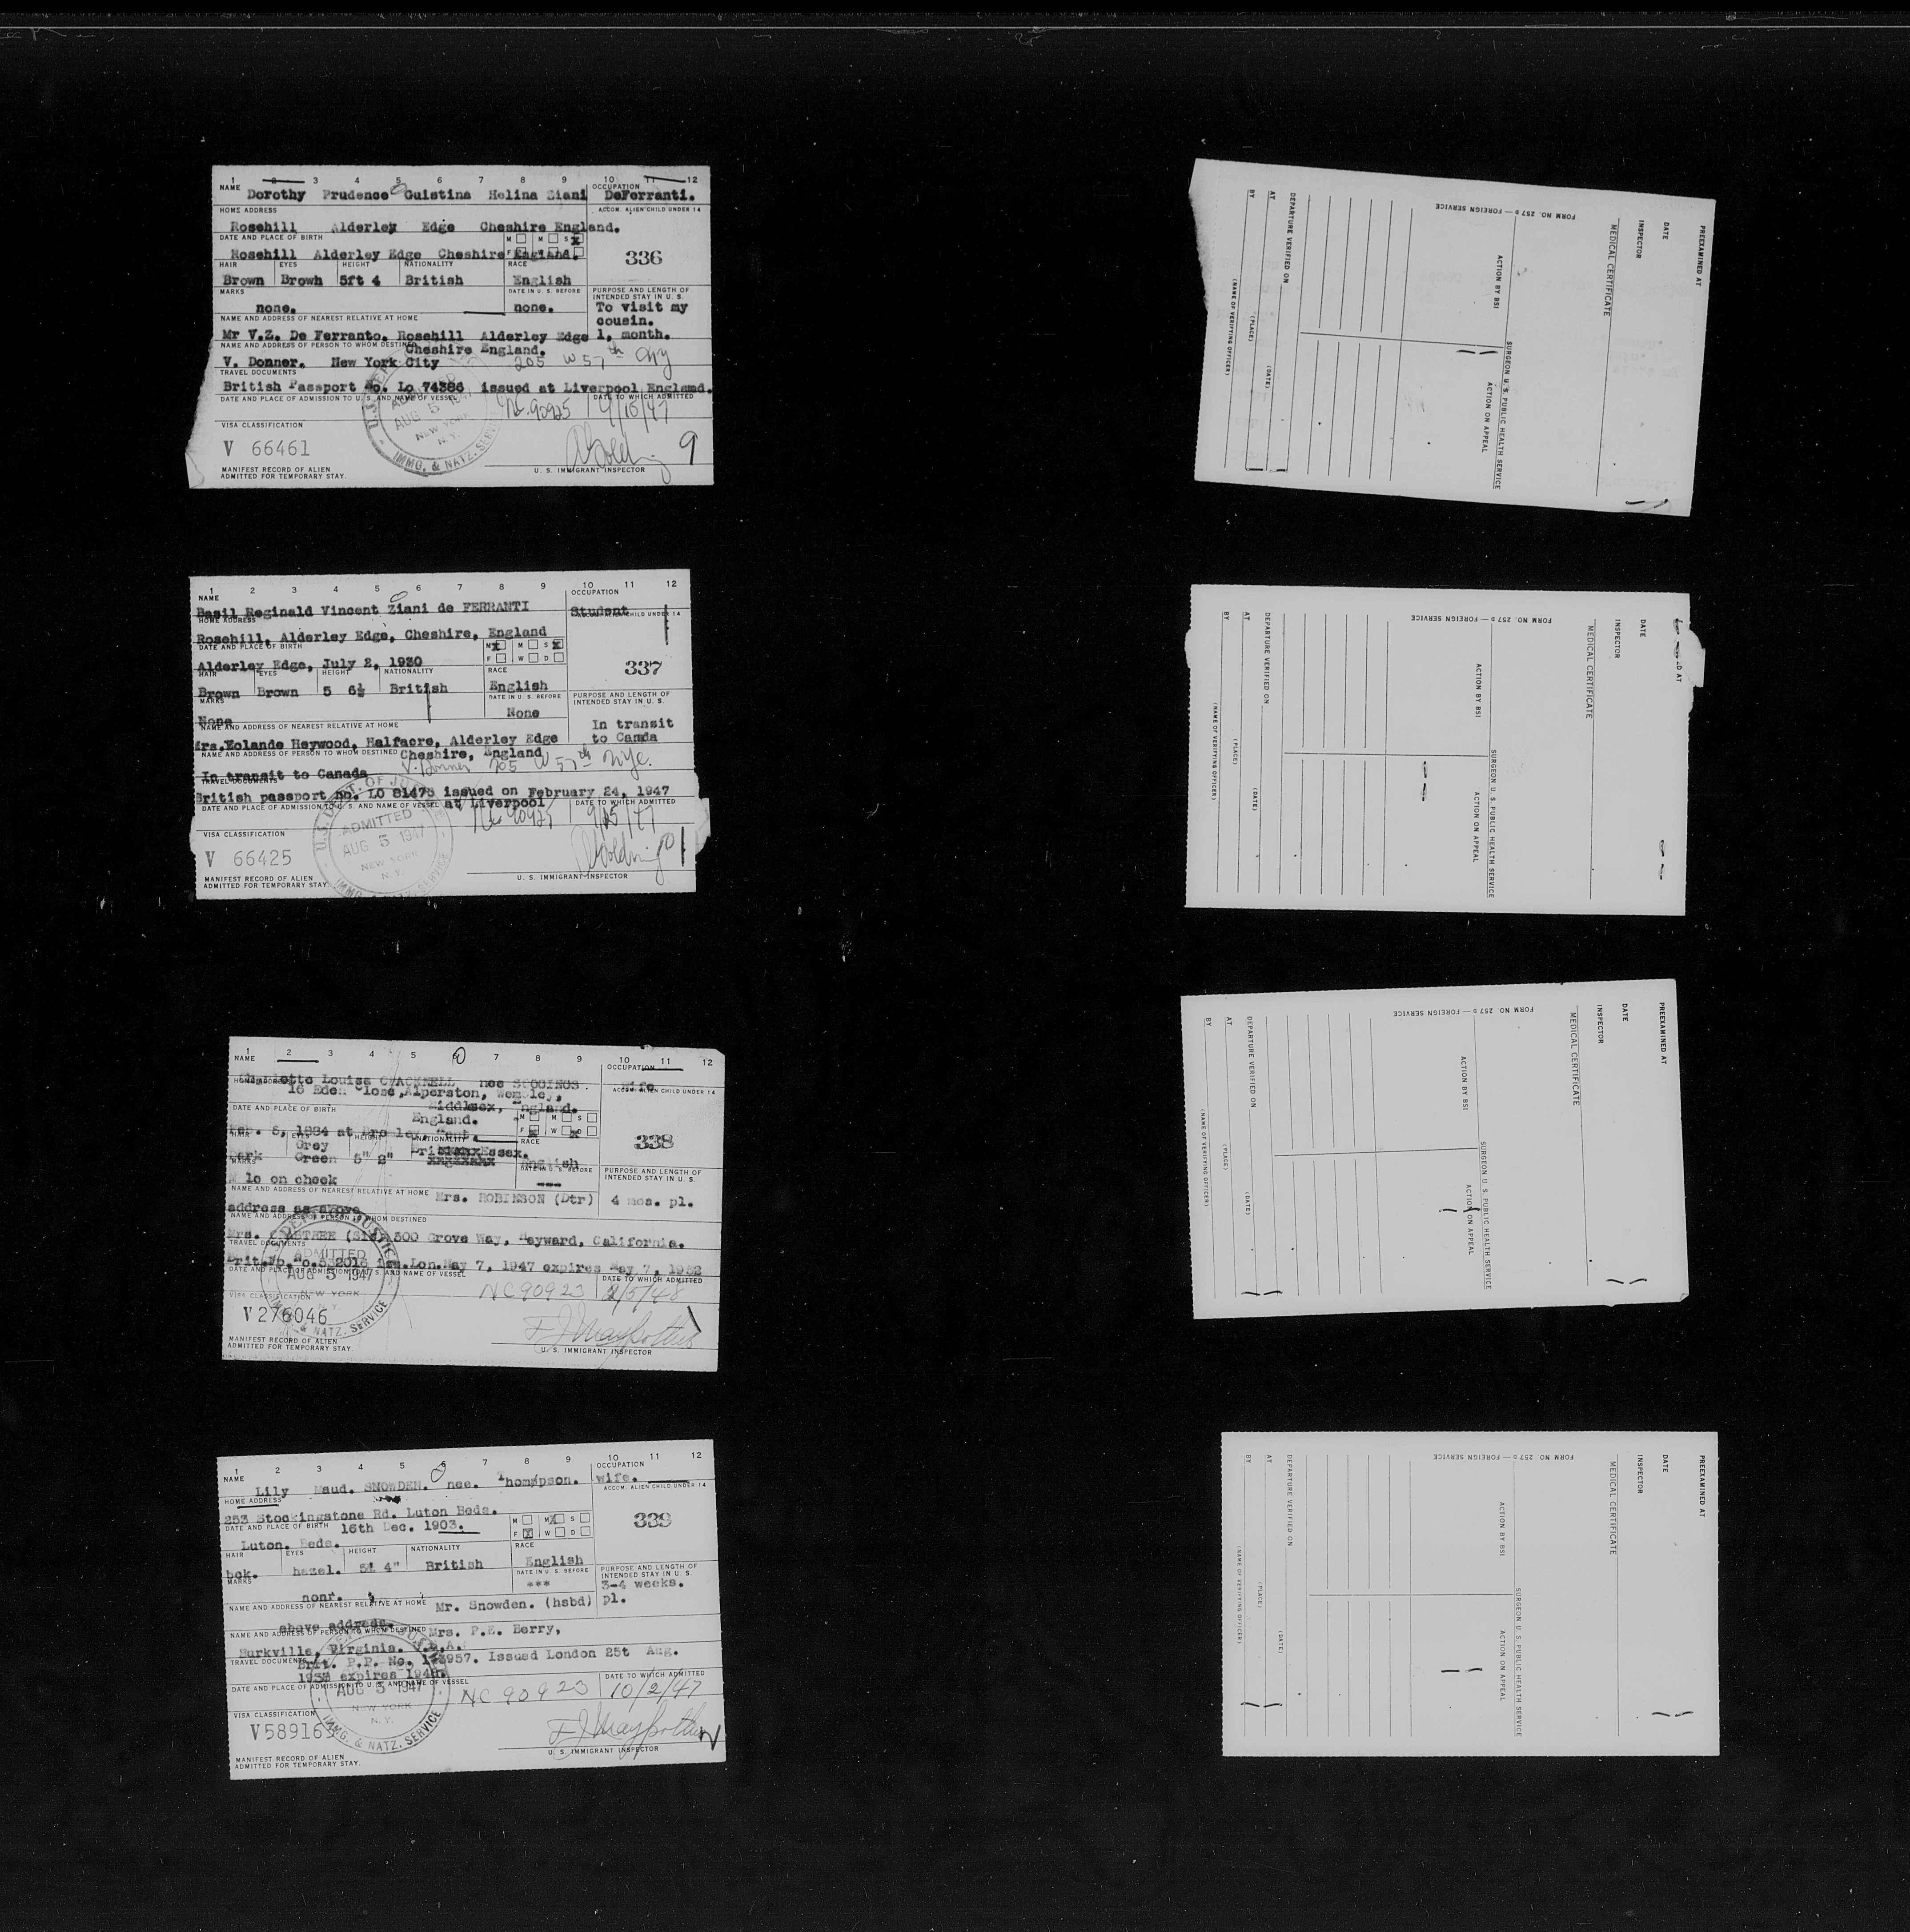 1 2 3 5 6 7 8 9 10 11 12
NAME OCCUPATION
Dorothy Prudence Guistina Helina Siani DeFerranti.
HOME ADDRESS ACCOM. ALIEN CHILD UNDER 14
Rosehill Alderley Edge Cheshire England.
DATE AND PLACE OF BIRTH M M S X
Rosehill Alderley Edge Cheshire England. F W D 336
HAIR EYES HEIGHT NATIONALITY RACE
Brown Brown 5ft 4 British English
MARKS DATE IN U. S. BEFORE PURPOSE AND LENGTH OF INTENDED STAY IN U. S.
none. none. To visit my
NAME AND ADDRESS OF NEAREST RELATIVE AT HOME cousin.
Mr V.Z. De Ferranto. Rosehill Alderley Edge 1, month.
NAME AND ADDRESS OF PERSON TO WHOM DESTINED Cheshire England.
V. Donner. New York City 205 W 57th
TRAVEL DOCUMENTS
British Passport No. Lo 74386 issued at Liverpool England.
DATE AND PLACE OF ADMISSION TO U. S. AND NAME OF VESSEL DATE TO WHICH ADMITTED
ADMITTED AUG 5 1947 NEW YORK N.Y. IMMG. & NATZ. SERV 90925 9/15/47
VISA CLASSIFICATION
V 66461 9
MANIFEST RECORD OF ALIEN U. S. IMMIGRANT INSPECTOR
ADMITTED FOR TEMPORARY STAY.
1 2 3 4 5 6 7 8 9 10 11 12
NAME OCCUPATION
Basil Reginald Vincent Ziani de FERRANTI Student
HOME ADDRESS ACCOM. ALIEN CHILD UNDER 14
Rosehill, Alderley Edge, Cheshire, England
DATE AND PLACE OF BIRTH M X M S X
Alderley Edge, July 2, 1930 F W D 337
HAIR EYES HEIGHT NATIONALITY RACE
Brown Brown 5 6½ British English
MARKS DATE IN U. S. BEFORE PURPOSE AND LENGTH OF INTENDED STAY IN U. S.
None None In transit
NAME AND ADDRESS OF NEAREST RELATIVE AT HOME to Canda
Mrs.Yolande Heywood, Halfacre, Alderley Edge
NAME AND ADDRESS OF PERSON TO WHOM DESTINED Cheshire, England
In transit to Canada V. Donner 205 W 57th NYC.
TRAVEL DOCUMENTS
British passport no. LO 81475 issued on February 24, 1947
DATE AND PLACE OF ADMISSION TO U. S. AND NAME OF VESSEL at Liverpool DATE TO WHICH ADMITTED
ADMITTED AUG 5 1947 NEW YORK N.Y. 90925 9/15/47
VISA CLASSIFICATION
V 66425
MANIFEST RECORD OF ALIEN U. S. IMMIGRANT INSPECTOR
ADMITTED FOR TEMPORARY STAY.
1 2 3 4 5 7 8 9 10 11 12
NAME OCCUPATION
Charlotte Louisa CRACKNELL nee SCOGINGS. Wife
HOME ADDRESS ACCOM. ALIEN CHILD UNDER 14
16 Eden Close, Alperston, Wembley,
DATE AND PLACE OF BIRTH Middlsex, England.
England. M M S
Feb. 8, 1884 at Bromley, Kent. F X W X D 338
HAIR EYES HEIGHT NATIONALITY RACE
Dark Grey Green 5" 2" Essex. English
MARKS DATE IN U. S. BEFORE PURPOSE AND LENGTH OF INTENDED STAY IN U. S.
M le on cheek ---
NAME AND ADDRESS OF NEAREST RELATIVE AT HOME Mrs. ROBINSON (Dtr) 4 mos. pl.
address as above
NAME AND ADDRESS OF PERSON TO WHOM DESTINED
Mrs. (Sis) 500 Grove Way, Hayward, California.
TRAVEL DOCUMENTS
iss.Lon.May 7, 1947 expires May 7, 1952
DATE AND PLACE OF ADMISSION TO U. S. AND NAME OF VESSEL DATE TO WHICH ADMITTED
ADMITTED AUG 5 1947 NEW YORK N.Y. & NATZ. SERVICE NC 90923 2/5/48
VISA CLASSIFICATION
V276046
MANIFEST RECORD OF ALIEN U. S. IMMIGRANT INSPECTOR
ADMITTED FOR TEMPORARY STAY.
1 2 3 4 5 6 7 8 9 10 11 12
NAME OCCUPATION
Lily Maud. SNOWDEN. nee. Thompson. wife.
HOME ADDRESS ACCOM. ALIEN CHILD UNDER 14
253 Stockingstone Rd. Luton Beds.
DATE AND PLACE OF BIRTH 16th Dec. 1903. M M X S
Luton. Beds. F X W D 339
HAIR EYES HEIGHT NATIONALITY RACE
bck. hazel. 5' 4" British English
MARKS DATE IN U. S. BEFORE PURPOSE AND LENGTH OF INTENDED STAY IN U. S.
nonr. *** 3-4 weeks.
NAME AND ADDRESS OF NEAREST RELATIVE AT HOME Mr. Snowden. (hsbd) pl.
above address.
NAME AND ADDRESS OF PERSON TO WHOM DESTINED Mrs. P.E. Berry,
Burkville, Virginia. U.S.A.
TRAVEL DOCUMENTS Brit. P.P. No. Issued London 25t Aug.
expires 1948.
DATE AND PLACE OF ADMISSION TO U. S. AND NAME OF VESSEL DATE TO WHICH ADMITTED
AUG 5 1947 NEW YORK N.Y. IMMG. & NATZ. SERVICE NC 90923 10/2/47
VISA CLASSIFICATION
V58916
MANIFEST RECORD OF ALIEN U. S. IMMIGRANT INSPECTOR
ADMITTED FOR TEMPORARY STAY.
PREEXAMINED AT
DATE
INSPECTOR
MEDICAL CERTIFICATE
FORM NO. 257 D — FOREIGN SERVICE
SURGEON U. S. PUBLIC HEALTH SERVICE
ACTION BY BSI ACTION ON APPEAL
DEPARTURE VERIFIED ON
AT (PLACE) (DATE)
BY (NAME OF VERIFYING OFFICER)
D AT
DATE
INSPECTOR
MEDICAL CERTIFICATE
FORM NO. 257 D — FOREIGN SERVICE
SURGEON U. S. PUBLIC HEALTH SERVICE
ACTION BY BSI ACTION ON APPEAL
DEPARTURE VERIFIED ON
AT (PLACE) (DATE)
BY (NAME OF VERIFYING OFFICER)
PREEXAMINED AT
DATE
INSPECTOR
MEDICAL CERTIFICATE
FORM NO. 257 D — FOREIGN SERVICE
SURGEON U. S. PUBLIC HEALTH SERVICE
ACTION BY BSI ACTION ON APPEAL
DEPARTURE VERIFIED ON
AT (PLACE) (DATE)
BY (NAME OF VERIFYING OFFICER)
PREEXAMINED AT
DATE
INSPECTOR
MEDICAL CERTIFICATE
FORM NO 257 D — FOREIGN SERVICE
SURGEON U. S. PUBLIC HEALTH SERVICE
ACTION BY BSI ACTION ON APPEAL
DEPARTURE VERIFIED ON
AT (PLACE) (DATE)
BY (NAME OF VERIFYING OFFICER)